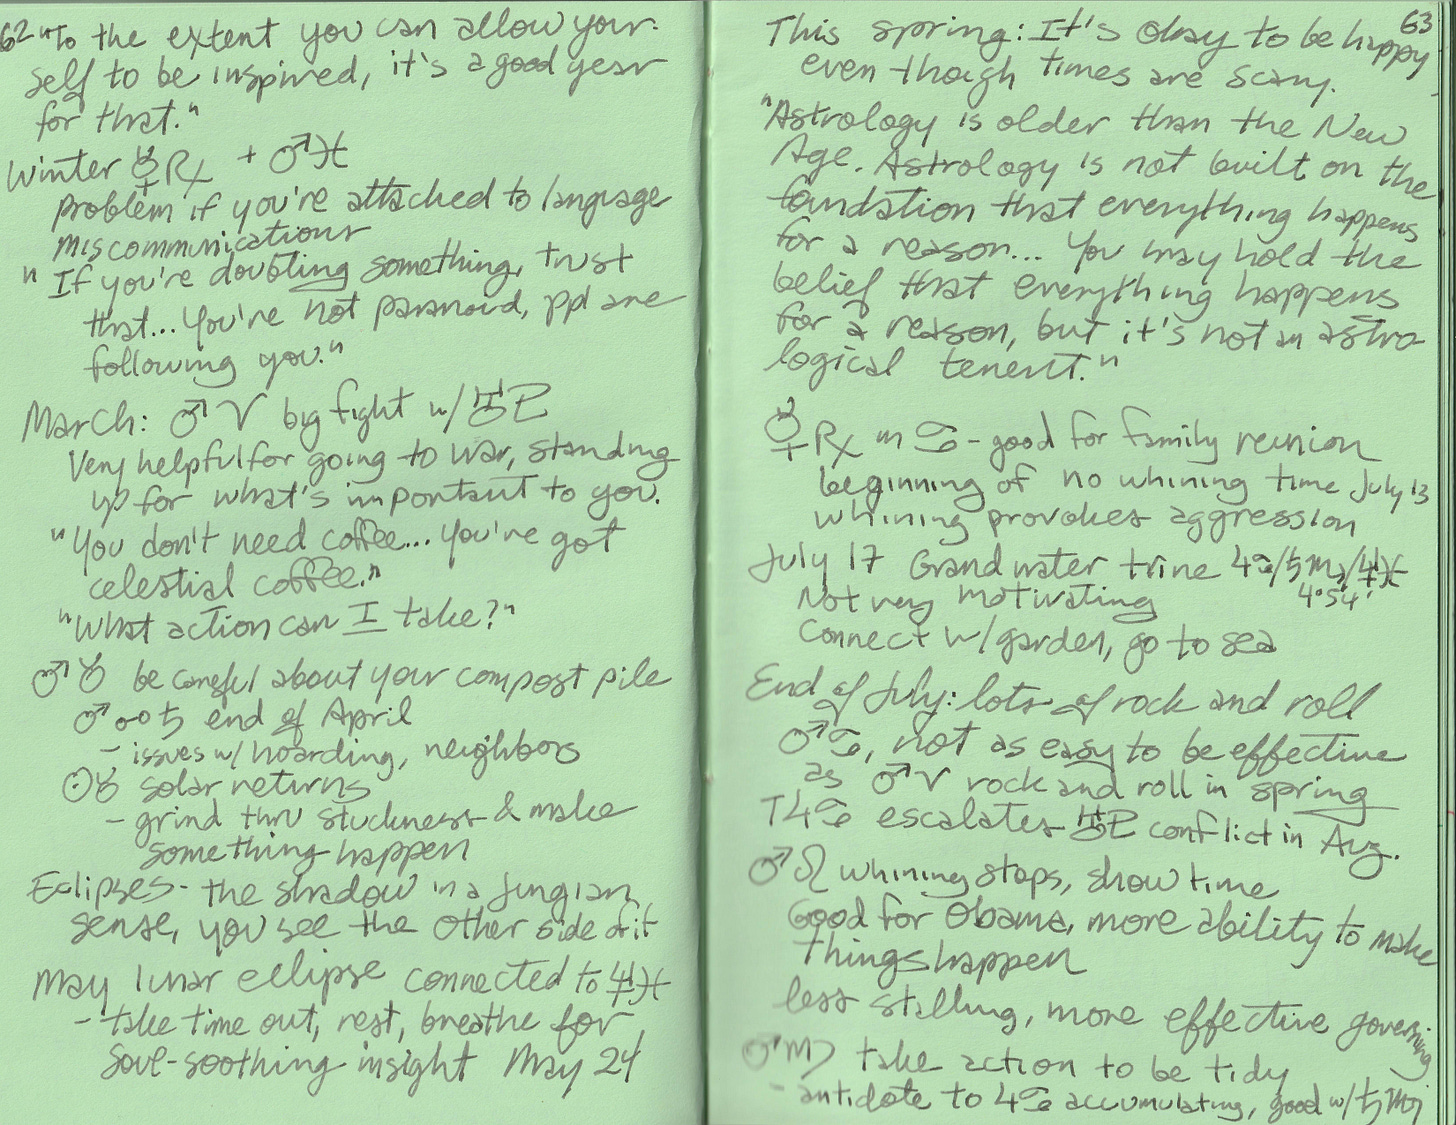 62 "To the extent you can allow your-
self to be inspired, it's a good year
for that."
Winter ☿℞ + ♂♓
problem if you're attached to language
miscommunications
"If you're doubting something, trust
that... You're not paranoid, ppl are
following you."
March: ♂♈ big fight w/ ♅♇
Very helpful for going to war, standing
up for what's important to you.
"You don't need coffee... You've got
celestial coffee."
"What action can I take?"
♂♉ be careful about your compost pile
♂☍♄ end of April
- issues w/ hoarding, neighbors
☉♉ solar returns
- grind thru stuckness & make
something happen
Eclipses - the shadow in a Jungian
sense, you see the other side of it
May lunar ecllipse connected to ♆♓
- take time out, rest, breathe for
soul-soothing insight May 24
63
This spring: It's okay to be happy
even though times are scary.
"Astrology is older than the New
Age. Astrology is not built on the
foundation that everything happens
for a reason... You may hold the
belief that everything happens
for a reason, but it's not an astro-
logical tenent."
☿℞ in ♋ - good for family reunion
beginning of no whining time July 13
whining provokes aggression
July 17 Grand water trine ♃♋/♄♏/♆♓
4°54'
Not very motivating
Connect w/ garden, go to sea
End of July: lots of rock and roll
♂♋, not as easy to be effective
as ♂♈ rock and roll in spring
T♃♋ escalates ♅♇ conflict in Aug.
♂♌ whining stops, show time
Good for Obama, more ability to make
things happen
less stalling, more effective governing
♂♍ take action to be tidy
- antidote to ♃♋ accumulating, good w/ ♄♏